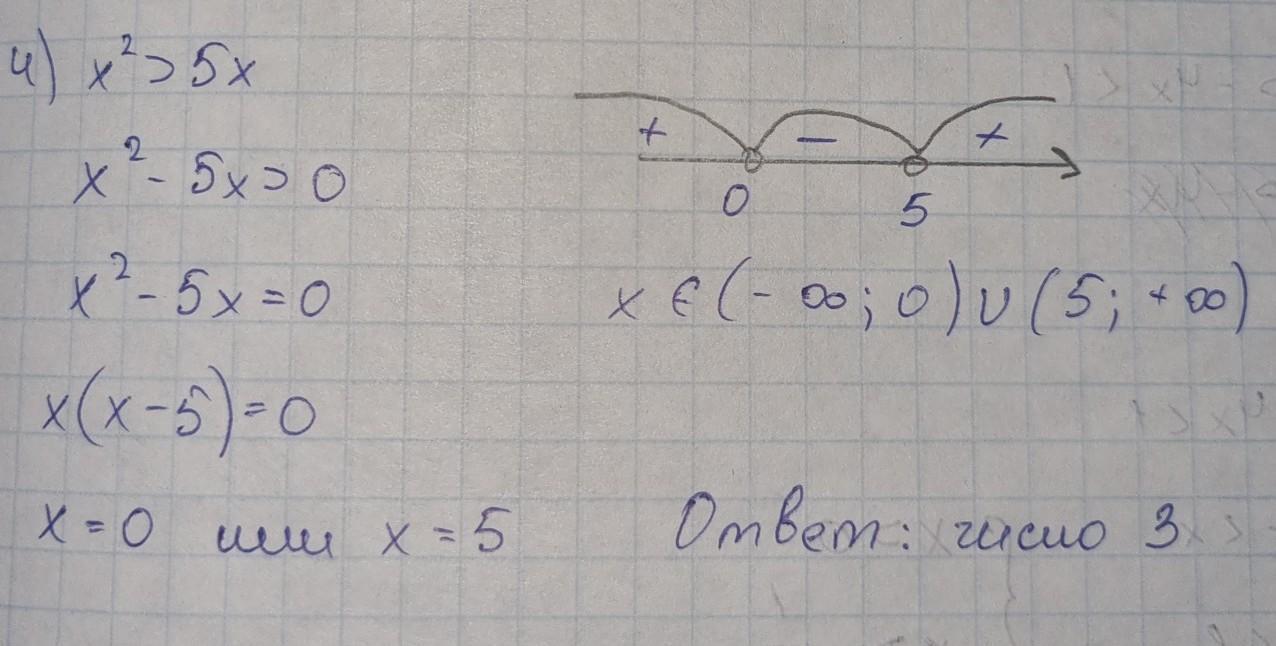 4) x² > 5x
x² - 5x > 0
x² - 5x = 0
x(x - 5) = 0
x = 0 или x = 5
+ − +
0 5
x ∈ (- ∞; 0) ∪ (5; + ∞)
Ответ: число 3